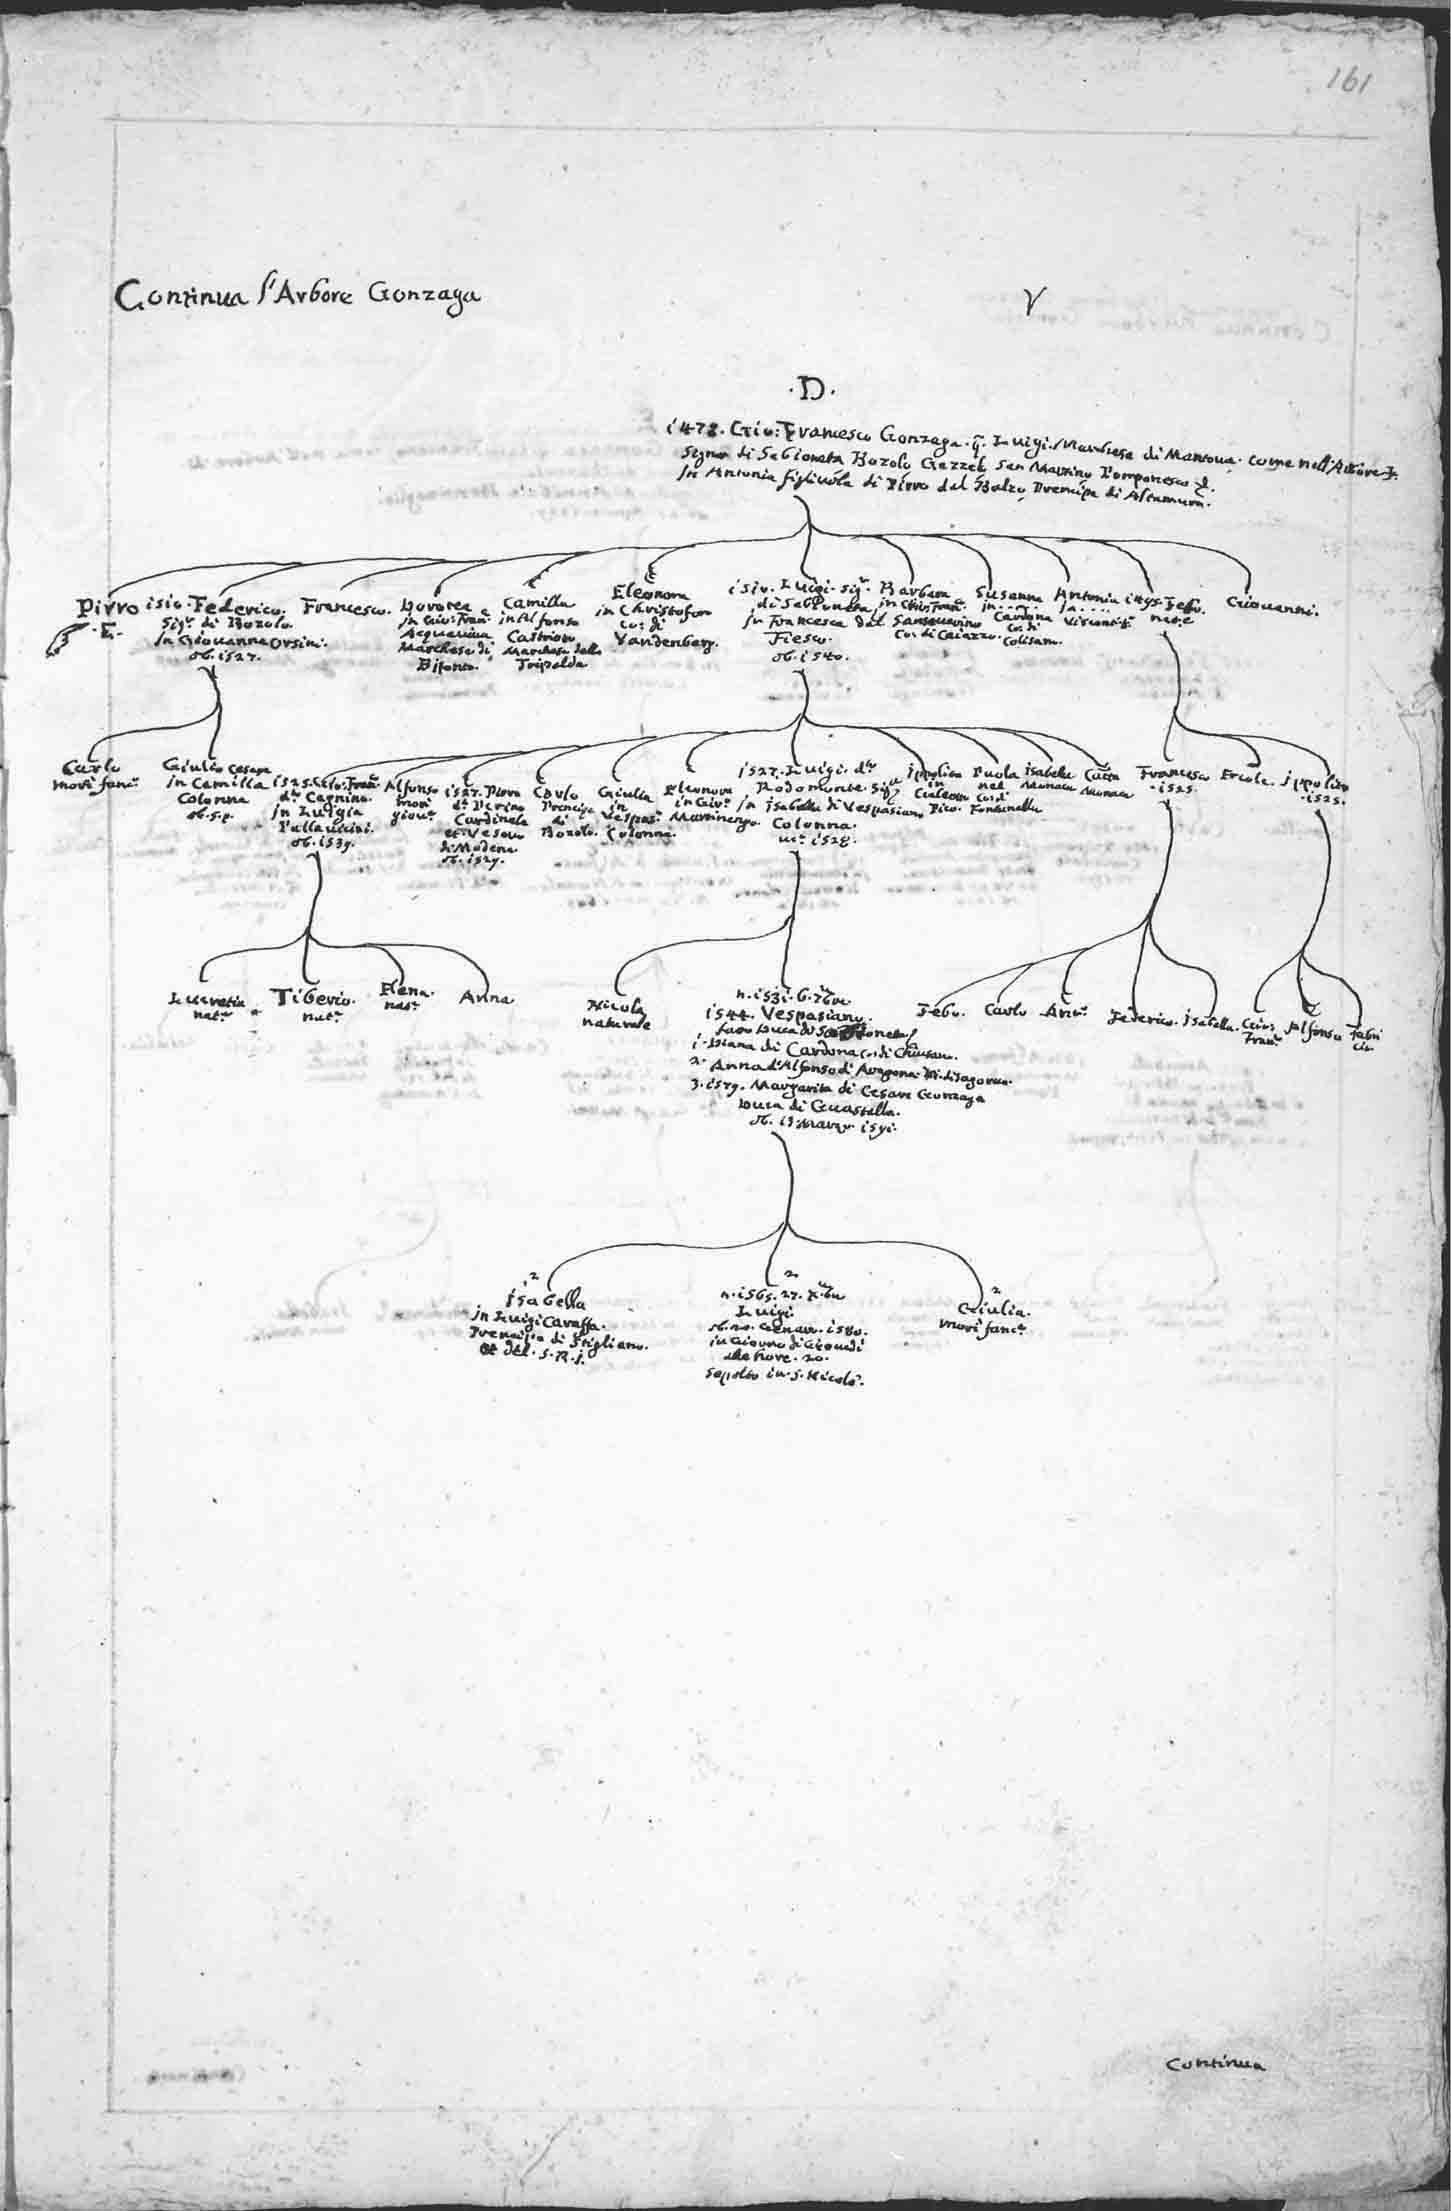 161
Continua l'Arbore Gonzaga
V
·D·
1478. Gio: Francesco Gonzaga. q. Luigi Marchese di Mantova. come nell'Arbore
Signor di Sabioneta Bozolo Gazzolo San Martino Pomponesco
In Antonia figliuola di Pirro dal Balzo Prencipe di Altamura.
Pirro
·E·
1510. Federico.
Sigr. di Bozolo.
In Giovanna Orsini.
ob. 1527.
Francesco.
Dorotea
in Giov: Fran:
Acquaviva
Marchese di
Bitonto.
Camilla
in Alfonso
Castrioto
Marchese della
Tripalda
Eleonora
in Christoforo
Co: di
Vandenberg.
1510. Luigi. Sigr.
di Sabioneta
In Francesca dal
Fiesco.
ob. 1540.
Barbara
in Gio: Fran:
Sanseverino
Co: di Caiazzo.
Susanna
in....
Cardona
Co: di
Colisano.
Antonia
in....
Visconti
1495. Febo.
nacque
Giovanni.
Carlo
morì fanc.
Giulio Cesare
in Camilla
Colonna
ob. s.p.
1525. Gio: Fran
do. Cagnino.
in Luigia
Pallavicini.
ob. 1539.
Alfonso
morì
giov.
1527. Pirro
do. Perino
Cardinale
et Vescovo
di Modena
ob. 1529.
Carlo
Prencipe
di
Bozolo.
Giulia
in
Vespas.
Colonna.
Eleonora
in Giro.
Martinengo.
1527. Luigi. do.
Rodomonte. Sigr
in Isabella di Vespasiano
Colonna.
1528.
Ippolita
in
Galeotto
Pico.
Paola
nel
Co: di
Fontanella
Isabella
Monaca
Monaca
Francesco
·1525.
Ercole.
Ippolito
·1525.
Lucretia
nat.
Tiberio.
nat.
Elena.
nat.
Anna
Nicola
naturale
n. 1531. 6. Xbre
1544. Vespasiano.
Duca di Sabioneta
1. Diana di Cardona Co: di Chiusano.
2. Anna d'Alfonso di Aragona
3. 1579. Margarita di Cesare Gonzaga
Duca di Guastalla.
ob. 13 Marzo. 1591.
Febo.
Carlo
Ant.
Federico.
Isabella.
Giov:
Fran.
Alfonso
Fabri
cio.
2
Isabella
in Luigi Caraffa.
Prencipe di Stigliano.
et del. S.R.I.
2
n. 1565. 27. Xbre
Luigi.
ob. 20. Genaro. 1580.
in Giorno di Giovedì
alle hore. 20.
sepolto in S. Nicolò.
2
Giulia.
morì fanc.
Continua